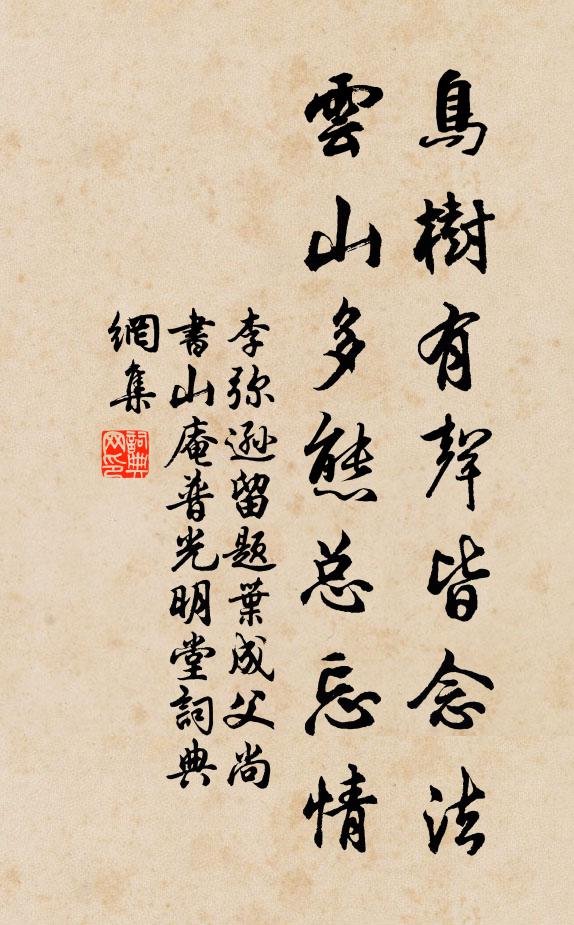 鳥樹有聲皆念法
雲山多態总忘情
李弥遜留題葉成父尚
書山庵普光明堂詞典
網集
詞典
网印